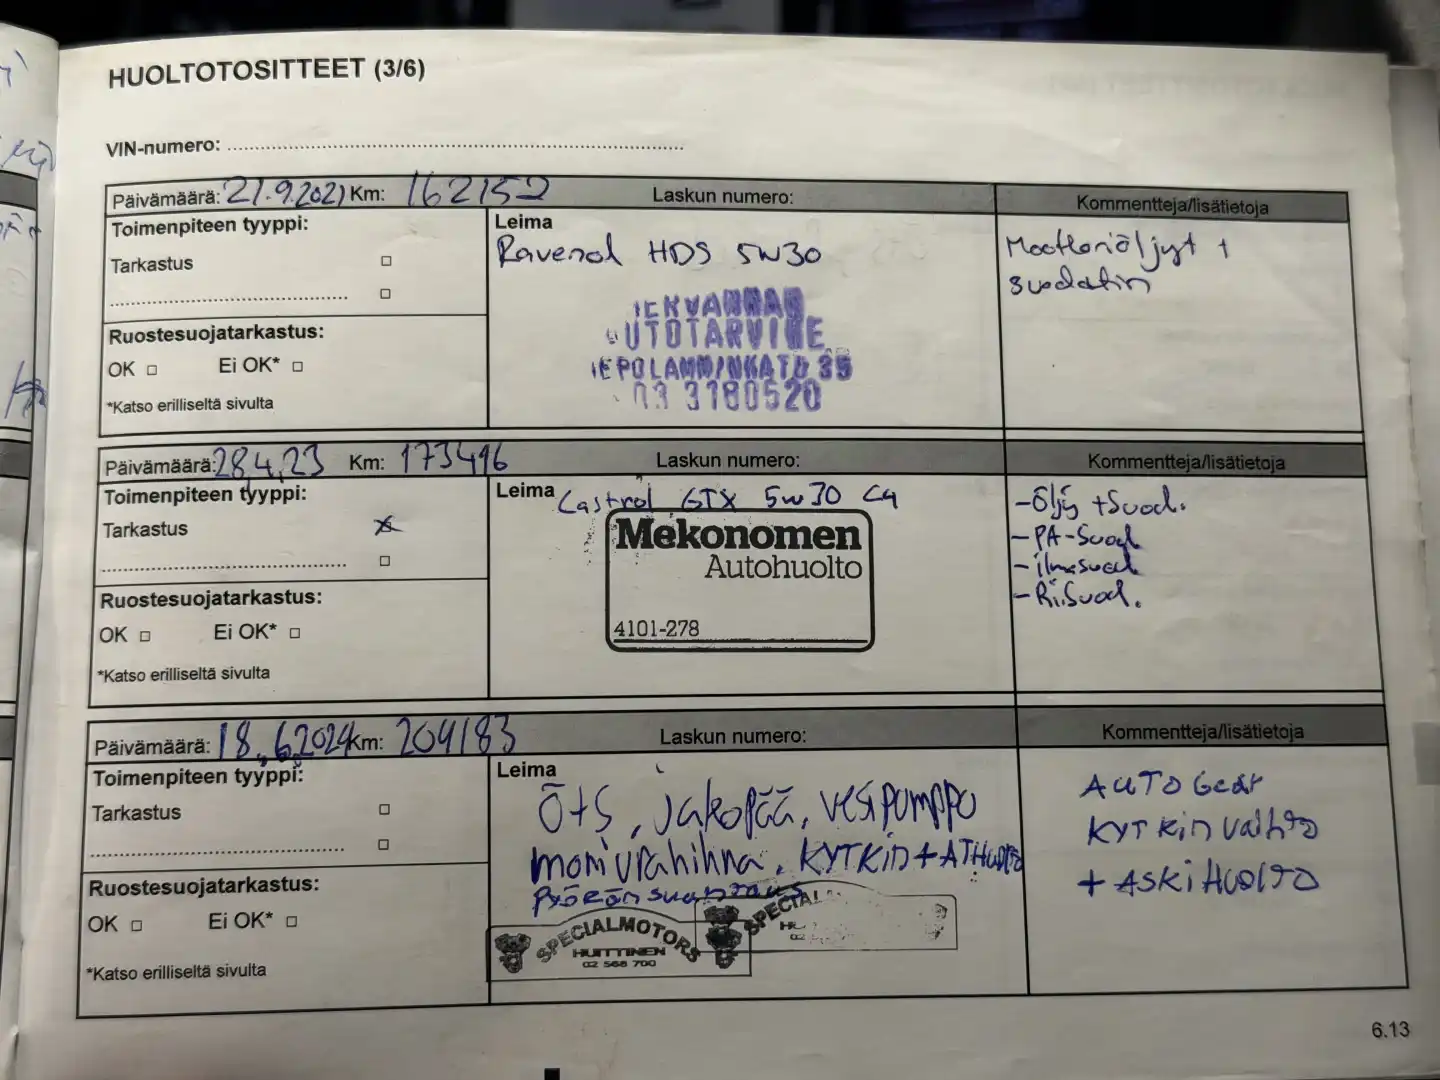 HUOLTOTOSITTEET (3/6)
VIN-numero:
Päivämäärä: 21.9.2021 Km: 162152 Laskun numero: Kommentteja/lisätietoja
Toimenpiteen tyyppi:
Tarkastus
Ruostesuojatarkastus:
OK Ei OK*
*Katso erilliseltä sivulta
Leima
Ravenol HDS 5W30
UTOTARVIKE
EPOLAMMINKATU 35
03 3180520
Moottoriöljyt +
suodatin
Päivämäärä: 28.4.23 Km: 173496 Laskun numero: Kommentteja/lisätietoja
Toimenpiteen tyyppi:
Tarkastus x
Ruostesuojatarkastus:
OK Ei OK*
*Katso erilliseltä sivulta
Leima Castrol GTX 5w30 C4
Mekonomen
Autohuolto
4101-278
-Öljy +Suod.
-PA-Suod
-ilmasuod
-Ri.Suod.
Päivämäärä: 18.6.2024 Km: 204183 Laskun numero: Kommentteja/lisätietoja
Toimenpiteen tyyppi:
Tarkastus
Ruostesuojatarkastus:
OK Ei OK*
*Katso erilliseltä sivulta
Leima
Ö+S, jakopää, vesipumppu
moniurahihna, KYTKin + AT Huolto
SPECIALMOTORS
HUITTINEN
02 568 700
SPECIAL
AUTO Gear
KYTKin vaihto
+ ASKi Huolto
6.13